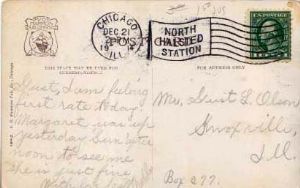 CHICAGO
DEC 21
19
ILL.
NORTH
HALSTED
STATION
POST
THIS SPACE MAY BE USED FOR
CORRESPONDENCE
FOR ADDRESS ONLY
Gust, I am feeling
first rate today.
Margaret was up
yesterday
noon to see me
she is just fine
Mr. Gust L. Olson
Knoxville,
Ill.
Box 277.